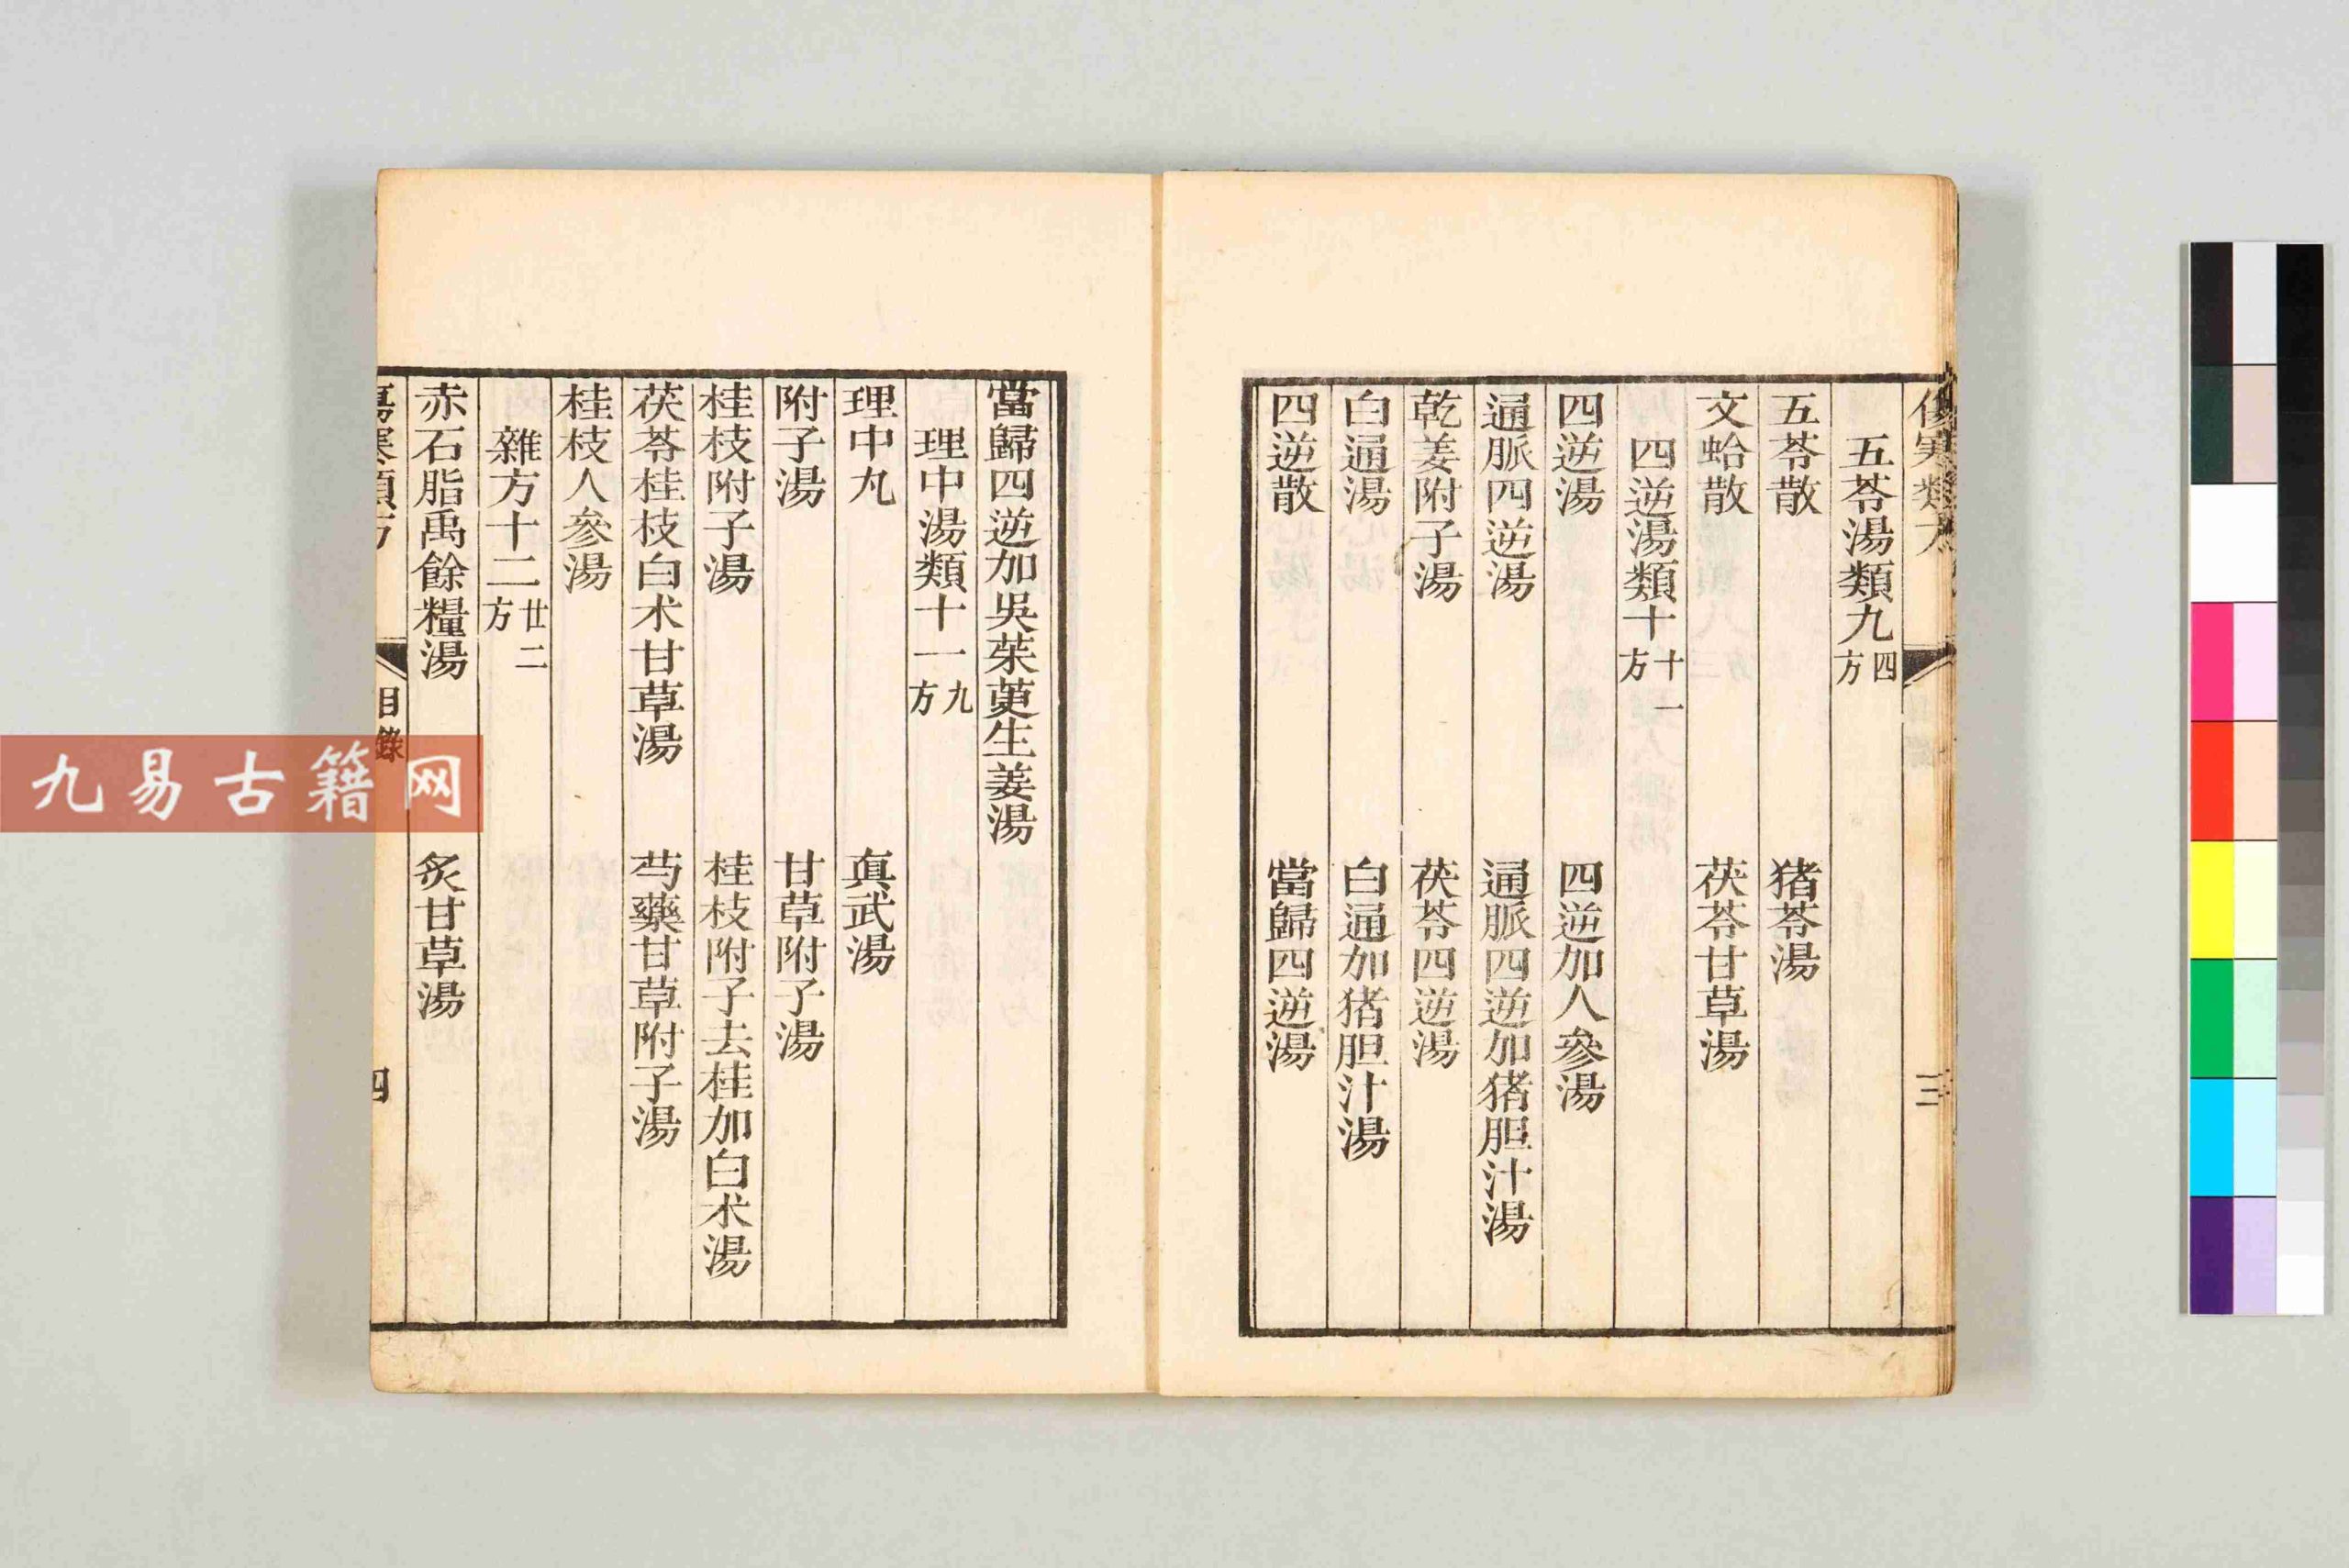 傷寒類方
三
五苓湯類九 四方
五苓散 猪苓湯
文蛤散 茯苓甘草湯
四逆湯類十 十一方
四逆湯 四逆加人參湯
通脈四逆湯 通脈四逆加猪胆汁湯
乾姜附子湯 茯苓四逆湯
白通湯 白通加猪胆汁湯
四逆散 當歸四逆湯
當歸四逆加吳茱萸生姜湯
理中湯類十一 九方
理中丸 真武湯
附子湯 甘草附子湯
桂枝附子湯 桂枝附子去桂加白朮湯
茯苓桂枝白朮甘草湯 芍藥甘草附子湯
桂枝人參湯
雜方十二 廿二方
赤石脂禹餘糧湯 炙甘草湯
傷寒類方 目錄 四
九易古籍网